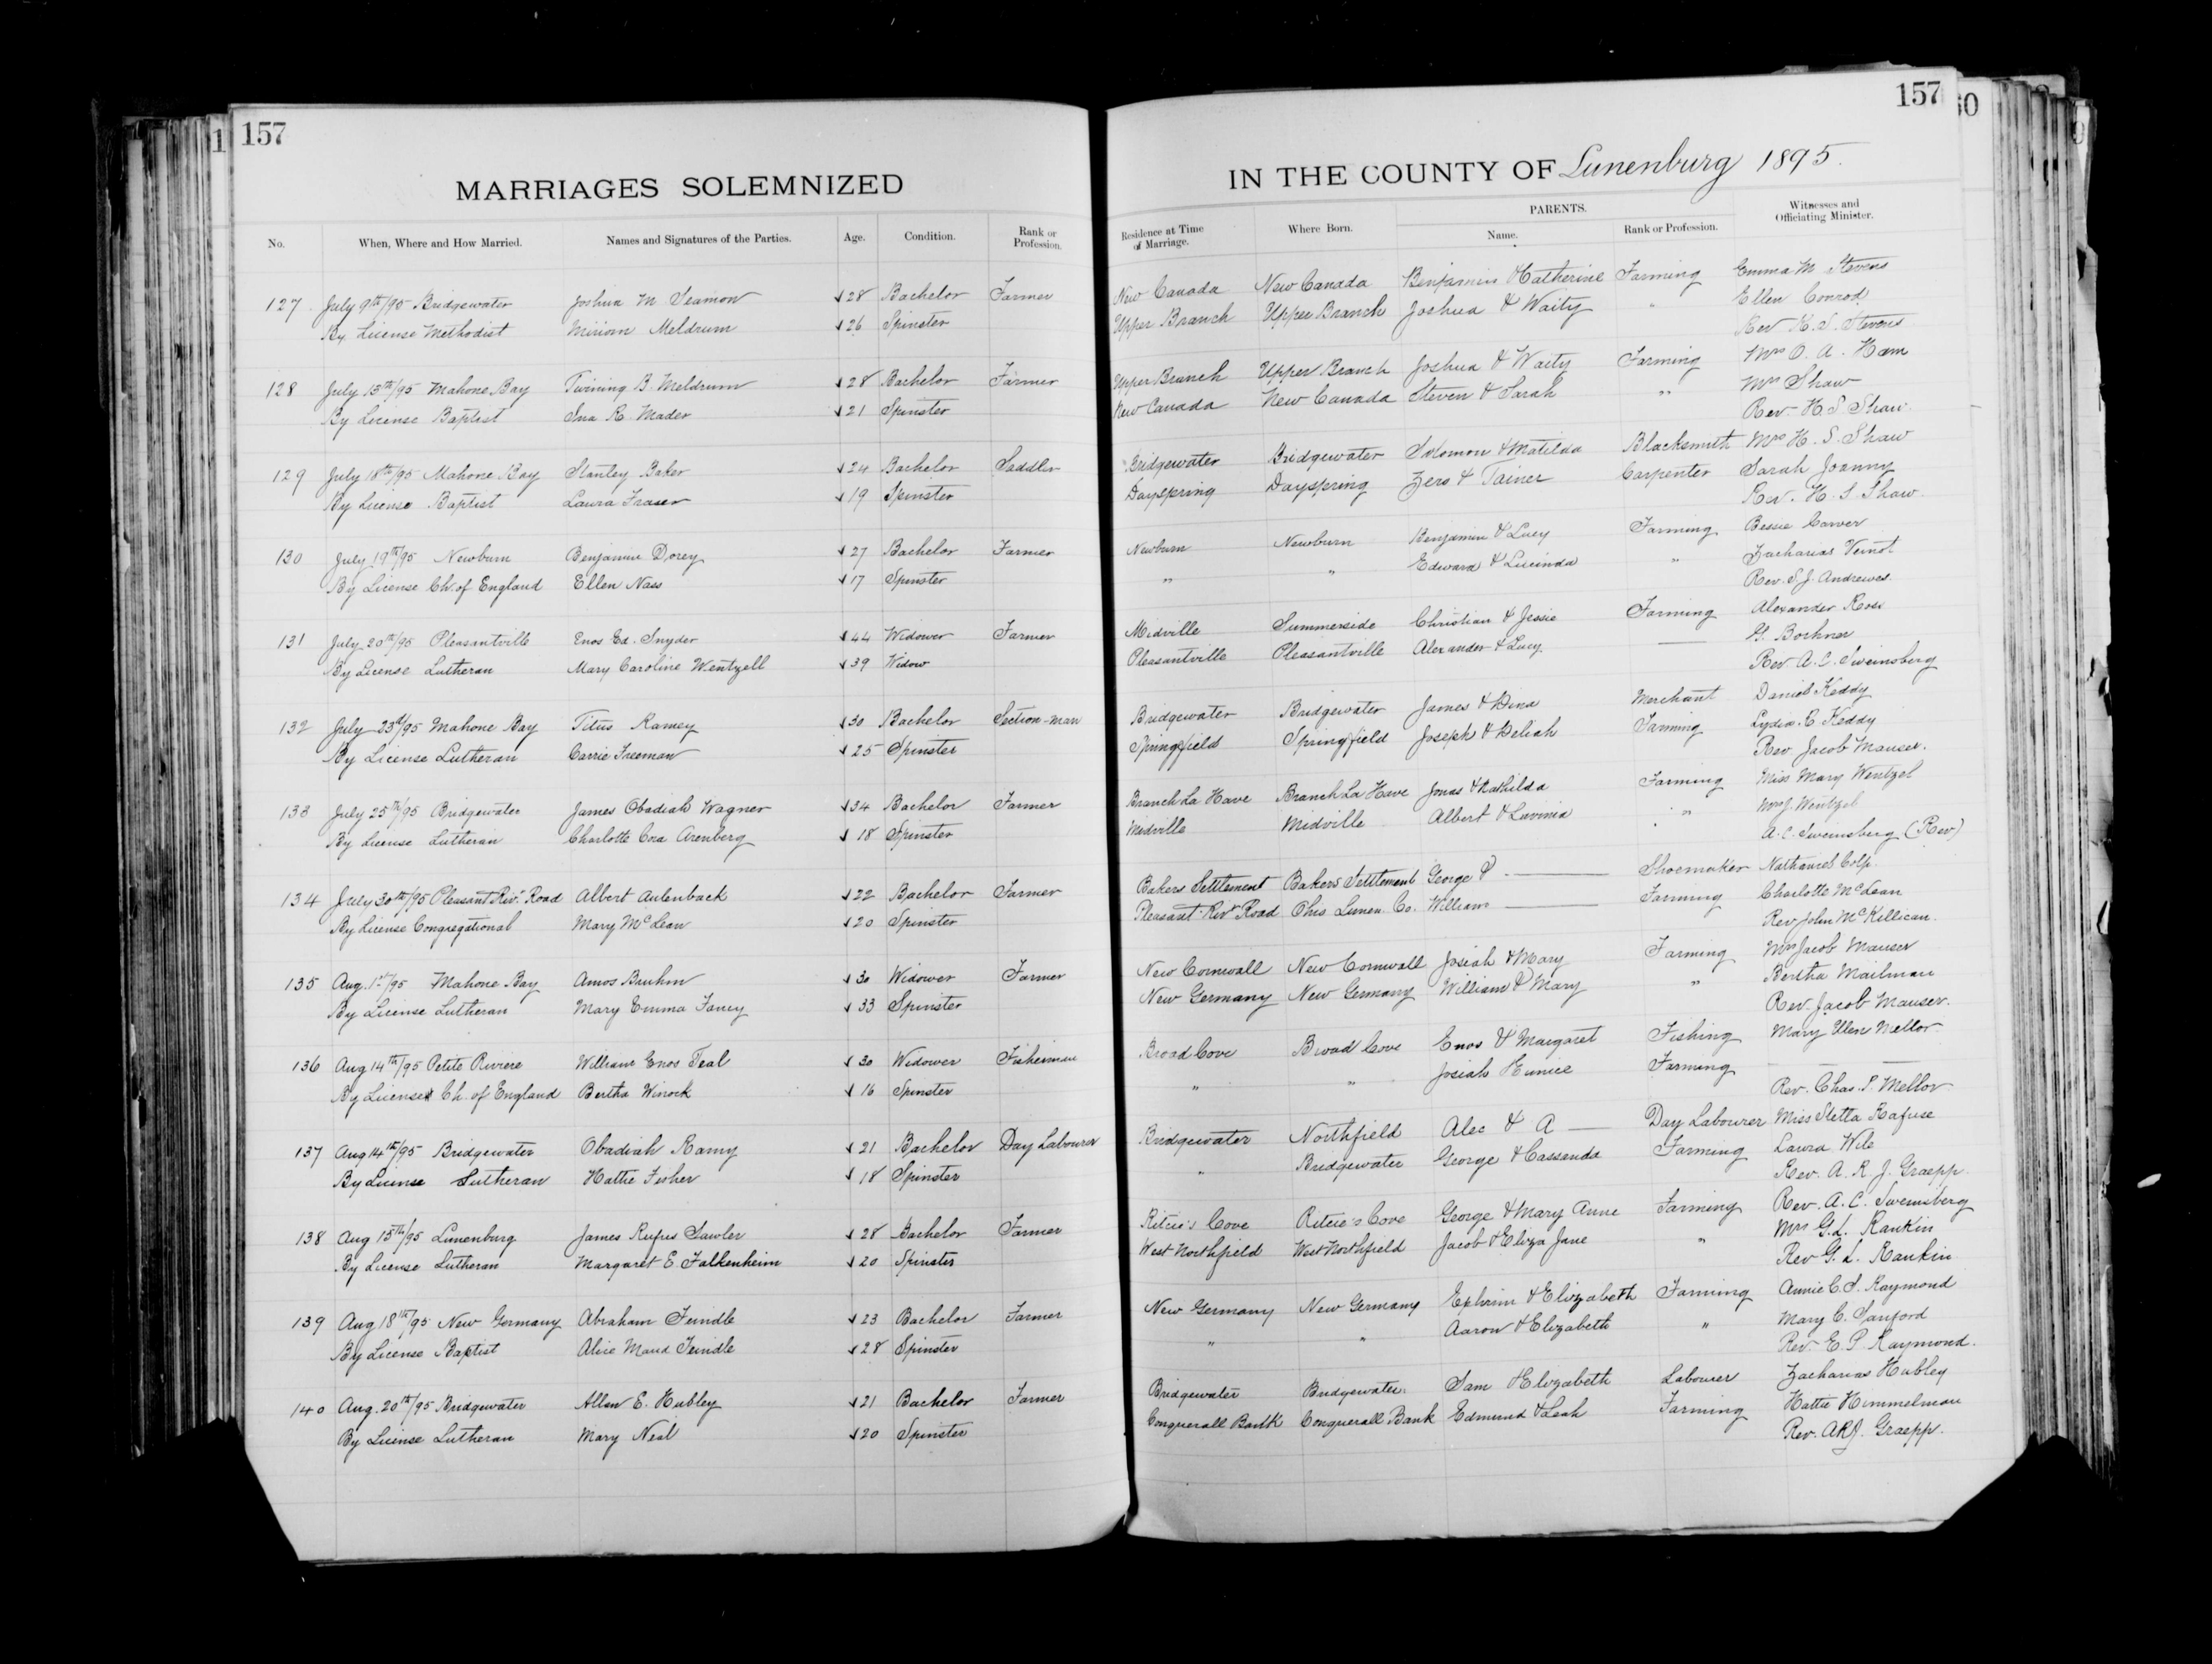 157
MARRIAGES SOLEMNIZED
No. When, Where and How Married. Names and Signatures of the Parties. Age. Condition. Rank or Profession.
127 July 9th/95 Bridgewater Joshua M Seamon 28 Bachelor Farmer
By License Methodist Miriam Meldrum 26 Spinster
128 July 15th/95 Mahone Bay Twining B. Meldrum 28 Bachelor Farmer
By License Baptist Ina R. Mader 21 Spinster
129 July 18th/95 Mahone Bay Stanley Baker 24 Bachelor Saddler
By License Baptist Laura Fraser 19 Spinster
130 July 19th/95 Newburn Benjamin Dorey 27 Bachelor Farmer
By License Ch. of England Ellen Nass 17 Spinster
131 July 20th/95 Pleasantville Enos Ed. Snyder 44 Widower Farmer
By License Lutheran Mary Caroline Wentzell 39 Widow
132 July 23d/95 Mahone Bay Titus Ramey 30 Bachelor Section-man
By License Lutheran Carrie Freeman 25 Spinster
133 July 25th/95 Bridgewater James Obadiah Wagner 34 Bachelor Farmer
By License Lutheran Charlotte Cora Arenberg 18 Spinster
134 July 30th/95 Pleasant Rivr. Road Albert Aulenback 22 Bachelor Farmer
By License Congregational Mary McLean 20 Spinster
135 Aug. 1st/95 Mahone Bay Amos Bruhm 30 Widower Farmer
By License Lutheran Mary Emma Fancy 33 Spinster
136 Aug 14th/95 Petite Riviere William Enos Teal 30 Widower Fisherman
By License Ch. of England Bertha Winock 16 Spinster
137 Aug 14th/95 Bridgewater Obadiah Ramy 21 Bachelor Day Labourer
By License Lutheran Hattie Fisher 18 Spinster
138 Aug 15th/95 Lunenburg James Rufus Sawler 28 Bachelor Farmer
By License Lutheran Margaret E. Falkenheim 20 Spinster
139 Aug 18th/95 New Germany Abraham Feindle 23 Bachelor Farmer
By License Baptist Alice Maud Feindle 28 Spinster
140 Aug. 20th/95 Bridgewater Allen E. Hubley 21 Bachelor Farmer
By License Lutheran Mary Neal 20 Spinster
157
IN THE COUNTY OF Lunenburg 1895.
Residence at Time of Marriage. Where Born. PARENTS. Name. Rank or Profession. Witnesses and Officiating Minister.
New Canada New Canada Benjamin & Catherine Farming Emma M Stevens
Upper Branch Upper Branch Joshua & Waity " Ellen Conrod
Rev K. S. Stevens
Upper Branch Upper Branch Joshua & Waity Farming Mrs O. A. Ham
New Canada New Canada Steven & Sarah " Mrs Shaw
Rev H. S. Shaw
Bridgewater Bridgewater Solomon & Matilda Blacksmith Mrs H. S. Shaw
Dayspring Dayspring Zero & Tainer Carpenter Sarah Joanny
Rev. H. S. Shaw
Newburn Newburn Benjamin & Lucy Farming Bessie Carver
" " Edward & Lucinda " Zacharias Veinot
Rev. S. J. Andrewes.
Midville Summerside Christian & Jessie Farming Alexander Ross
Pleasantville Pleasantville Alexander & Lucy — G. Boehner
Rev A. C. Sweinsberg
Bridgewater Bridgewater James & Dina Merchant Daniel Keddy
Springfield Springfield Joseph & Deliah Farming Lydia R. Keddy
Rev. Jacob Mauser.
Branch La Have Branch La Have Jonas & Mathilda Farming Miss Mary Wentzel
Midville Midville Albert & Luvinia " Mrs J. Wentzel
A. C. Sweinsberg (Rev)
Bakers Settlement Bakers Settlement George & — Shoemaker Nathaniel Colp.
Pleasant Rivr Road Ohio Lunen. Co. William — Farming Charlotte McLean
Rev John McKillican.
New Cornwall New Cornwall Josiah & Mary Farming Mrs Jacob Mauser
New Germany New Germany William & Mary " Bertha Mailman
Rev. Jacob Mauser.
Broad Cove Broad Cove Enos & Margaret Fishing Mary Ellen Mellor
" " Josiah Eunice Farming —
Rev. Chas. P. Mellor
Bridgewater Northfield Alec & A — Day Labourer Miss Stetta Rafuse
" Bridgewater George & Cassanda Farming Laura Wile
Rev. A. R. J. Graepp.
Ritcie's Cove Ritcie's Cove George & Mary Anne Farming Rev. A. C. Sweinsberg
West Northfield West Northfield Jacob & Eliza Jane " Mrs G. L. Rankin
Rev G. L. Rankin
New Germany New Germany Ephrim & Elizabeth Farming Annie C. S. Raymond
" " Aaron & Elizabeth " Mary C. Sanford
Rev E. P. Raymond.
Bridgewater Bridgewater Sam & Elizabeth Labourer Zacharias Hubley
Conquerall Bank Conquerall Bank Edmund & Leah Farming Hattie Himmelman
Rev. A.R.J. Graepp.